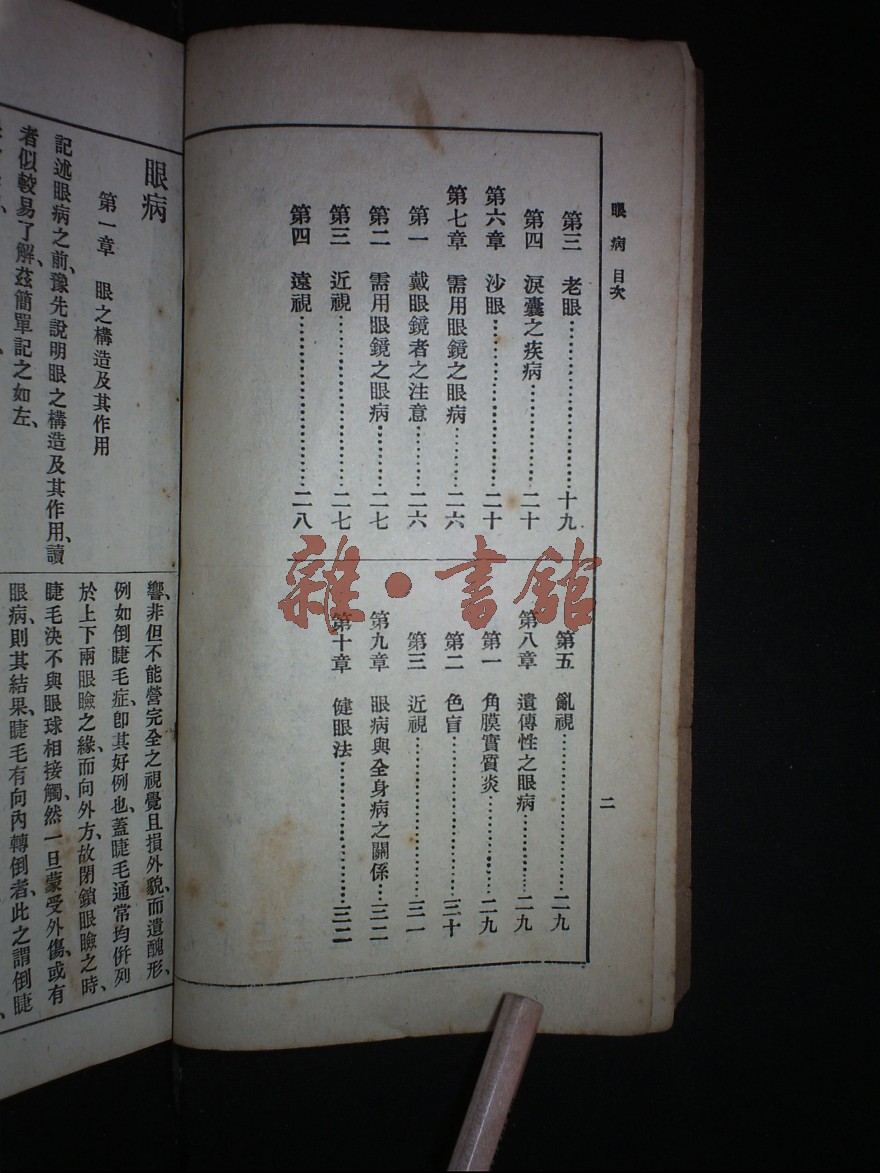 眼病目次
二
第三 老眼……………………十九
第四 淚囊之疾病……………二十
第六章 沙眼…………………二十
第七章 需用眼鏡之眼病……二六
第一 戴眼鏡者之注意………二六
第二 需用眼鏡之眼病………二七
第三 近視……………………二七
第四 遠視……………………二八
第五 亂視……………………二九
第八章 遺傳性之眼病………二九
第一 角膜實質炎……………二九
第二 色盲……………………三十
第三 近視……………………三一
第九章 眼病與全身病之關係…三二
第十章 健眼法………………三二
雜·書館
眼病
第一章 眼之構造及其作用
記述眼病之前、豫先說明眼之構造及其作用、讀
者似較易了解、茲簡單記之如左、
響、非但不能營完全之視覺、且損外貌、而遺醜形、
例如倒睫毛症、卽其好例也、蓋睫毛通常均倂列
於上下兩眼瞼之緣、而向外方、故閉鎖眼瞼之時、
睫毛決不與眼球相接觸、然一旦蒙受外傷、或有
眼病、則其結果、睫毛有向內轉倒者、此之謂倒睫